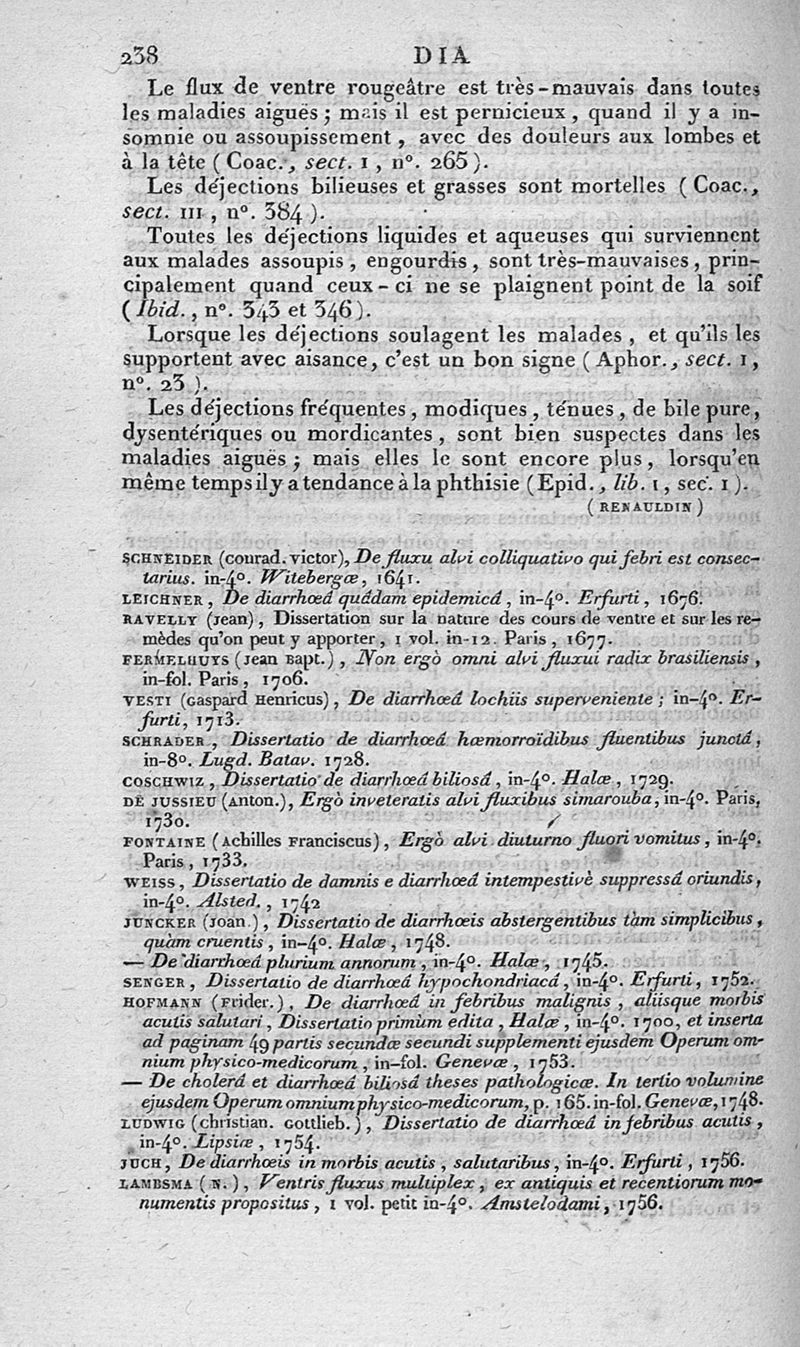 238
DIA
Le flux de ventre rougeâtre est très-mauvais dans toutes
les maladies aiguës ; mais il est pernicieux, quand il y a in-
somnie ou assoupissement, avec des douleurs aux lombes et
à la tête ( Coac., sect. I, n°. 265 ).
Les déjections bilieuses et grasses sont mortelles ( Coac.,
sect. III, n°. 384 ).
Toutes les déjections liquides et aqueuses qui surviennent
aux malades assoupis, engourdis, sont très-mauvaises, prin-
cipalement quand ceux-ci ne se plaignent point de la soif
( Ibid., n°. 343 et 346 ).
Lorsque les déjections soulagent les malades, et qu'ils les
supportent avec aisance, c'est un bon signe ( Aphor., sect. I,
n°. 23 ).
Les déjections fréquentes, modiques, ténues, de bile pure,
dysentériques ou mordicantes, sont bien suspectes dans les
maladies aiguës ; mais elles le sont encore plus, lorsqu'en
même temps il y a tendance à la phthisie ( Epid., lib. I, sec. I ).
( RENAULDIN )
SCHNEIDER (conrad. victor), De fluxu alvi colliquativo qui febri est consec-
tarius. in-4°. Witebergæ, 1641.
LEICHNER, De diarrhœâ quâdam epidemicâ, in-4°. Erfurti, 1676.
RAVELLY (jean), Dissertation sur la nature des cours de ventre et sur les re-
mèdes qu'on peut y apporter, 1 vol. in-12. Paris, 1677.
FERMELHUYS (jean Bapt.), Non ergò omni alvi fluxui radix brasiliensis,
in-fol. Paris, 1706.
VESTI (Gaspard Henricus), De diarrhœâ lochiis superveniente ; in-4°. Er-
furti, 1713.
SCHRADER, Dissertatio de diarrhœâ hæmorroïdibus fluentibus junctâ,
in-8°. Lugd. Batav. 1728.
COSCHWIZ, Dissertatio de diarrhœâ biliosâ, in-4°. Halæ, 1729.
DE JUSSIEU (Anton.), Ergò inveteratis alvi fluxibus simarouba, in-4°. Paris,
1730.
FONTAINE (Achilles Franciscus), Ergò alvi diuturno fluori vomitus, in-4°.
Paris, 1733.
WEISS, Dissertatio de damnis e diarrhœâ intempestivè suppressâ oriundis,
in-4°. Alsted., 1742
JUNCKER (joan.), Dissertatio de diarrhœis abstergentibus tàm simplicibus,
quàm cruentis, in-4°. Halæ, 1748.
— De diarrhœâ plurium annorum, in-4°. Halæ, 1745.
SENGER, Dissertatio de diarrhœâ hypochondriacâ, in-4°. Erfurti, 1752.
HOFMANN (Frider.), De diarrhœâ in febribus malignis, aliisque morbis
acutis salutari, Dissertatio primùm edita, Halæ, in-4°. 1700, et inserta
ad paginam 49 partis secundæ secundi supplementi ejusdem Operum om-
nium physico-medicorum, in-fol. Genevæ, 1753.
— De cholerâ et diarrhœâ biliosâ theses pathologicæ. In tertio volumine
ejusdem Operum omnium physico-medicorum, p. 165. in-fol. Genevæ, 1748.
LUDWIG (christian. Gottlieb.), Dissertatio de diarrhœâ in febribus acutis,
in-4°. Lipsiæ, 1754.
JUCH, De diarrhœis in morbis acutis, salutaribus, in-4°. Erfurti, 1756.
LAMBSMA (N.), Ventris fluxus multiplex, ex antiquis et recentiorum mo-
numentis propositus, 1 vol. petit in-4°. Amstelodami, 1756.